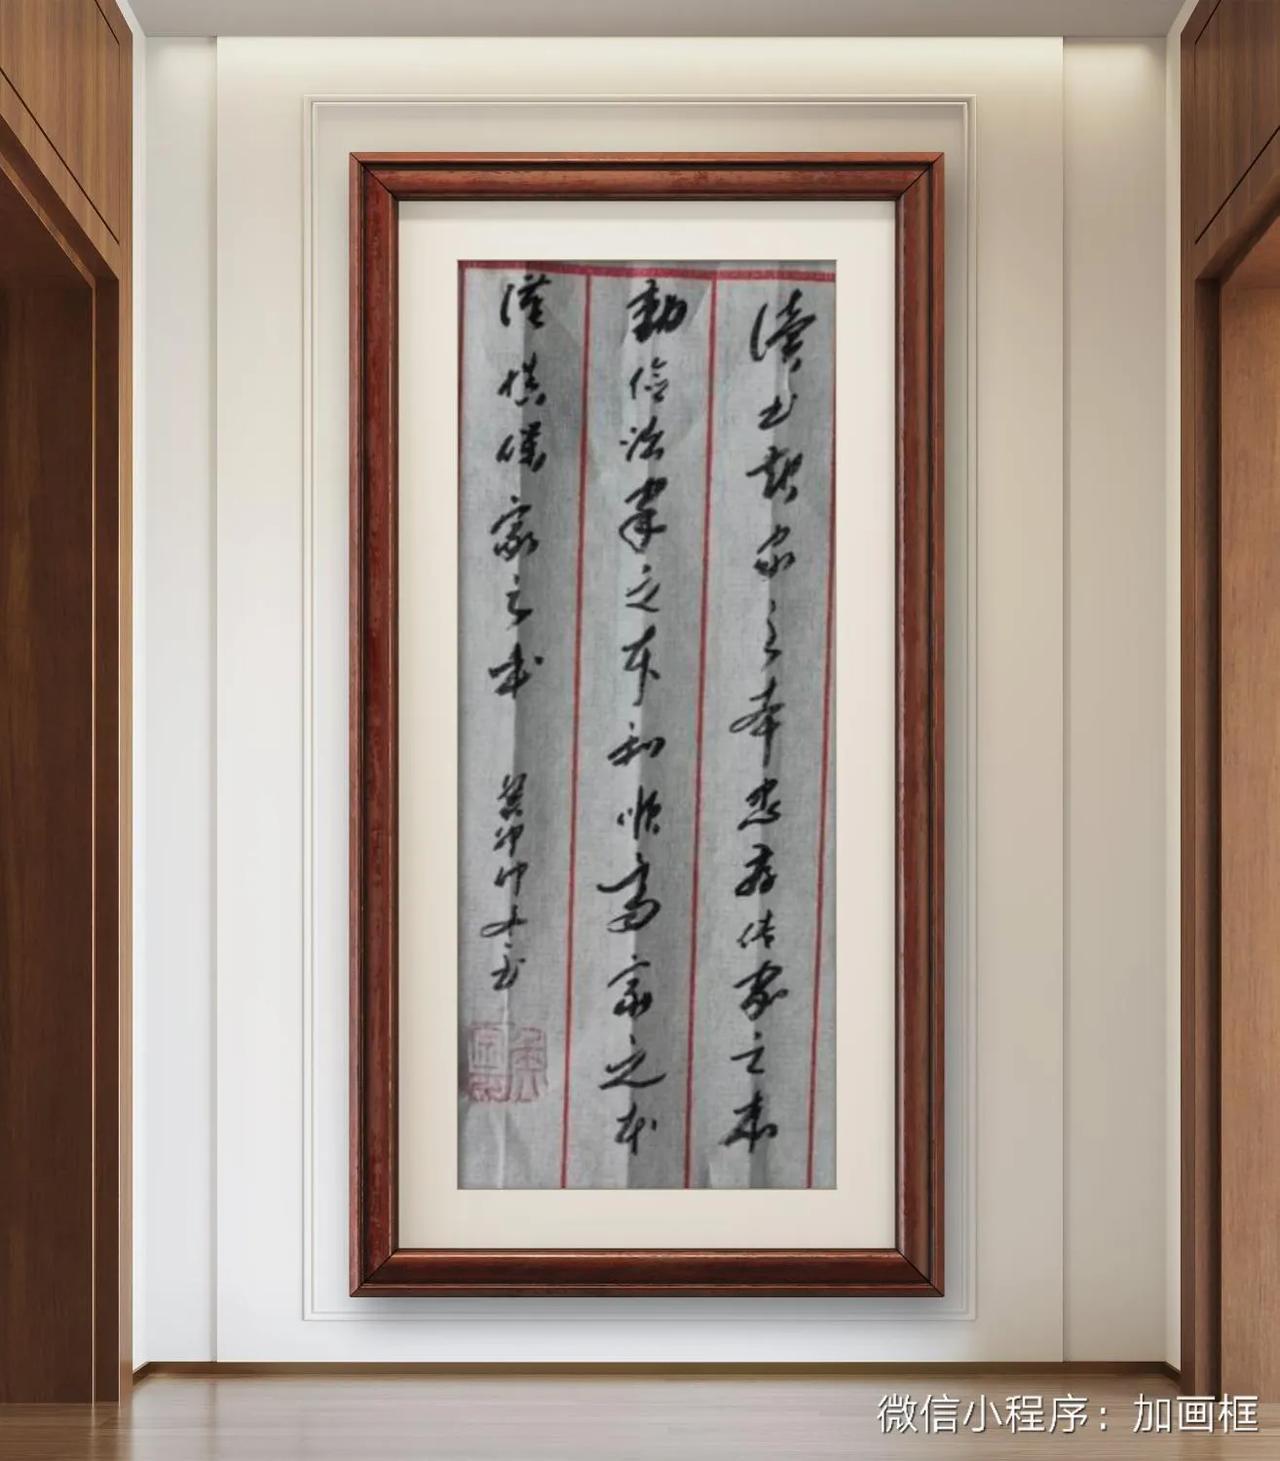 读书起家之本忠孝传家之本
勤俭治家之本和顺齐家之本
谨慎保家之本
癸卯
微信小程序：加画框